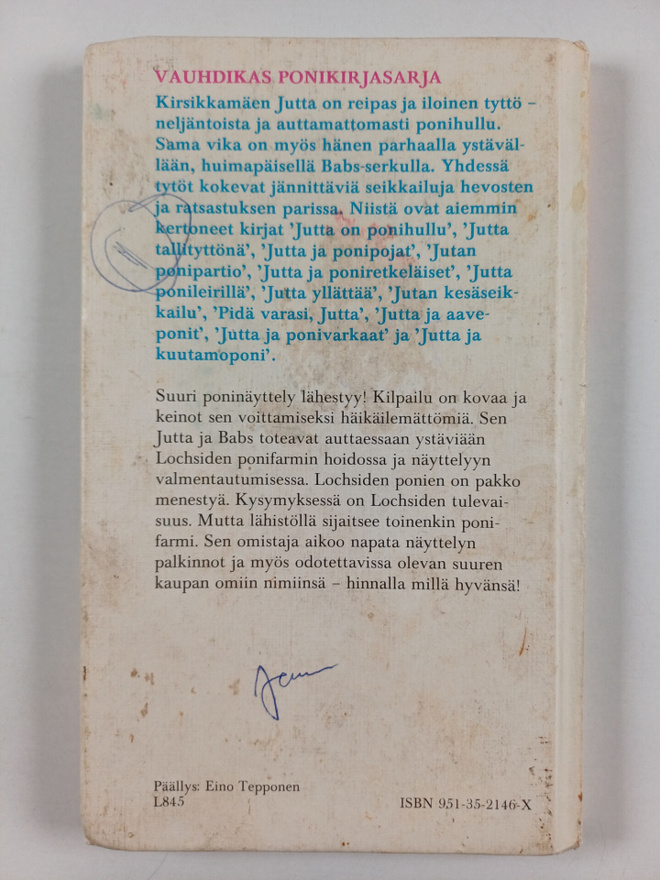 VAUHDIKAS PONIKIRJASARJA
Kirsikkamäen Jutta on reipas ja iloinen tyttö –
neljäntoista ja auttamattomasti ponihullu.
Sama vika on myös hänen parhaalla ystäväl-
lään, huimapäisellä Babs-serkulla. Yhdessä
tytöt kokevat jännittäviä seikkailuja hevosten
ja ratsastuksen parissa. Niistä ovat aiemmin
kertoneet kirjat 'Jutta on ponihullu', 'Jutta
tallityttönä', 'Jutta ja ponipojat', 'Jutan
ponipartio', 'Jutta ja poniretkeläiset', 'Jutta
ponileirillä', 'Jutta yllättää', 'Jutan kesäseik-
kailu', 'Pidä varasi, Jutta', 'Jutta ja aave-
ponit', 'Jutta ja ponivarkaat' ja 'Jutta ja
kuutamoponi'.
Suuri poninäyttely lähestyy! Kilpailu on kovaa ja
keinot sen voittamiseksi häikäilemättömiä. Sen
Jutta ja Babs toteavat auttaessaan ystäviään
Lochsiden ponifarmin hoidossa ja näyttelyyn
valmentautumisessa. Lochsiden ponien on pakko
menestyä. Kysymyksessä on Lochsiden tulevai-
suus. Mutta lähistöllä sijaitsee toinenkin poni-
farmi. Sen omistaja aikoo napata näyttelyn
palkinnot ja myös odotettavissa olevan suuren
kaupan omiin nimiinsä – hinnalla millä hyvänsä!
Päällys: Eino Tepponen
L845
ISBN 951-35-2146-X